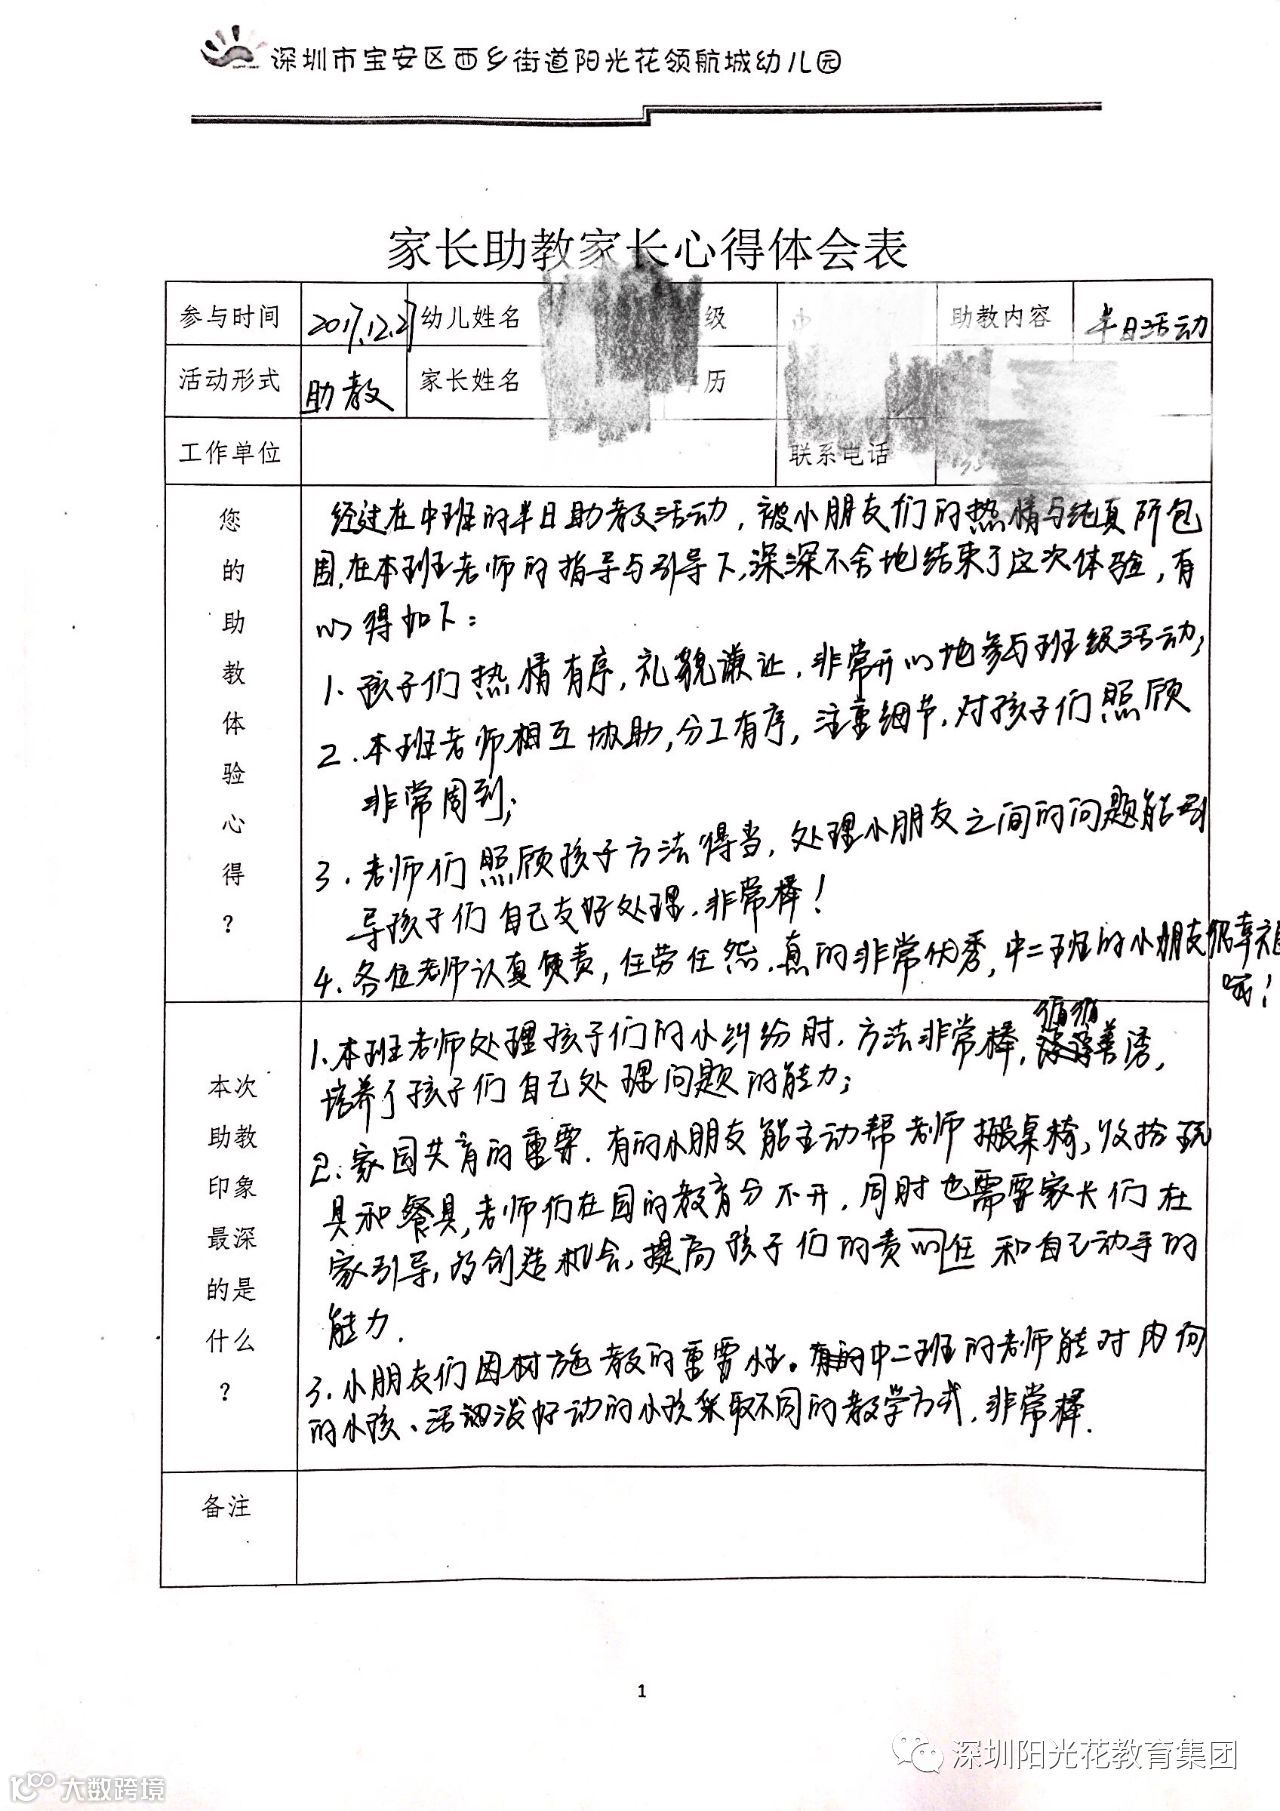 深圳市宝安区西乡街道阳光花领航城幼儿园
家长助教家长心得体会表
参与时间 2017.12.27 幼儿姓名 级 中 助教内容 半日活动
活动形式 助教 家长姓名 历
工作单位 联系电话
您的助教体验心得？
经过在中班的半日助教活动，被小朋友们的热情与纯真所包
围，在本班老师的指导与引导下，深深不舍地结束了这次体验，有
心得如下：
1、孩子们热情有序，礼貌谦让，非常开心地参与班级活动；
2、本班老师相互协助，分工有序，注重细节，对孩子们照顾
非常周到；
3、老师们照顾孩子方法得当，处理小朋友之间的问题能引
导孩子们自己友好处理，非常棒！
4、各位老师认真负责，任劳任怨，真的非常优秀，中二班的小朋友很幸福
哦！
本次助教印象最深的是什么？
1、本班老师处理孩子们的小纠纷时，方法非常棒，循循善诱，
培养了孩子们自己处理问题的能力；
2、家园共育的重要，有的小朋友能主动帮老师搬桌椅，收拾玩
具和餐具，老师们在园的教育分不开，同时也需要家长们在
家引导，多创造机会，提高孩子们的责任和自己动手的
能力．
3、小朋友们因材施教的重要性。中二班的老师能对内向
的小孩、活泼好动的小孩采取不同的教学方式，非常棒．
备注
1
深圳阳光花教育集团
大数跨境